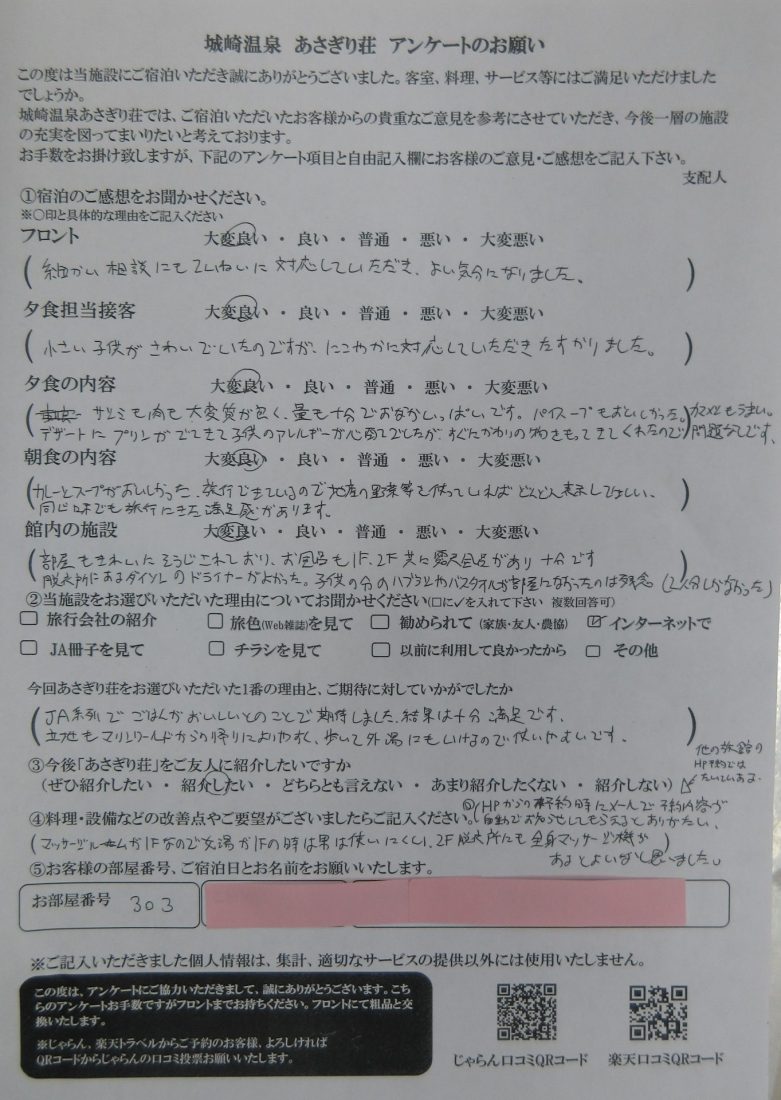 城崎温泉 あさぎり荘 アンケートのお願い
この度は当施設にご宿泊いただき誠にありがとうございました。客室、料理、サービス等にはご満足いただけました
でしょうか。
城崎温泉あさぎり荘では、ご宿泊いただいたお客様からの貴重なご意見を参考にさせていただき、今後一層の施設
の充実を図ってまいりたいと考えております。
お手数をお掛け致しますが、下記のアンケート項目と自由記入欄にお客様のご意見・ご感想をご記入下さい。
支配人
①宿泊のご感想をお聞かせください。
※○印と具体的な理由をご記入ください
フロント 大変良い ・ 良い ・ 普通 ・ 悪い ・ 大変悪い
(細かい相談にもていねいに対応していただき、よい気分になりました。)
夕食担当接客 大変良い ・ 良い ・ 普通 ・ 悪い ・ 大変悪い
(小さい子供がさわいでいたのですが、にこやかに対応していただきたすかりました。)
夕食の内容 大変良い ・ 良い ・ 普通 ・ 悪い ・ 大変悪い
(サシミも肉も大変質が良く、量も十分でおなかいっぱいです。パイスープもおいしかった。)カマメシもうまい。
デザートにプリンがでてきて子供のアレルギーが心配でしたが、すぐにかわりの物をもってきてくれたので問題なしです。
朝食の内容 大変良い ・ 良い ・ 普通 ・ 悪い ・ 大変悪い
(カレーとスープがおいしかった、旅行できているので地産の野菜等を使っていればどんどん表示してほしい、
同じ味でも旅行にきた満足感があります。)
館内の施設 大変良い ・ 良い ・ 普通 ・ 悪い ・ 大変悪い
(部屋もきれいにそうじされており、お風呂も1F、2F共に露天風呂があり十分です
脱衣所にあるダイソンのドライヤーがよかった。子供の分のハブラシやバスタオルが部屋になかったのは残念(2人分しかなかった)
②当施設をお選びいただいた理由についてお聞かせください(□に✓を入れて下さい 複数回答可)
□ 旅行会社の紹介 □ 旅色(Web雑誌)を見て □ 勧められて (家族・友人・農協) ☑ インターネットで
□ JA冊子を見て □ チラシを見て □ 以前に利用して良かったから □ その他
今回あさぎり荘をお選びいただいた1番の理由と、ご期待に対していかがでしたか
(JA系列でごはんがおいしいとのことで期待しました、結果は十分満足です。
立地もマリンワールドからの帰りによりやすく、歩いて外湯にもいけるので使いやすいです。)
③今後「あさぎり荘」をご友人に紹介したいですか
(ぜひ紹介したい ・ 紹介したい ・ どちらとも言えない ・ あまり紹介したくない ・ 紹介しない)
他の旅館の
HP予約では
たいていある。
④料理・設備などの改善点やご要望がございましたらご記入ください。
HPからの予約時にメールで予約内容が
自動でお知らせしてもらえるとありがたい、
(マッサージルームが1Fなので女湯が1Fの時は男は使いにくい、2F脱衣所にも全身マッサージ機が)
あるとよいなと思いました。
⑤お客様の部屋番号、ご宿泊日とお名前をお願いいたします。
お部屋番号 303
※ご記入いただきました個人情報は、集計、適切なサービスの提供以外には使用いたしません。
この度は、アンケートにご協力いただきまして、誠にありがとうございます。こち
らのアンケートお手数ですがフロントまでお持ちください。フロントにて粗品と交
換いたします。
※じゃらん、楽天トラベルからご予約のお客様、よろしければ
QRコードからじゃらんの口コミ投票お願いいたします。
じゃらん口コミQRコード 楽天口コミQRコード